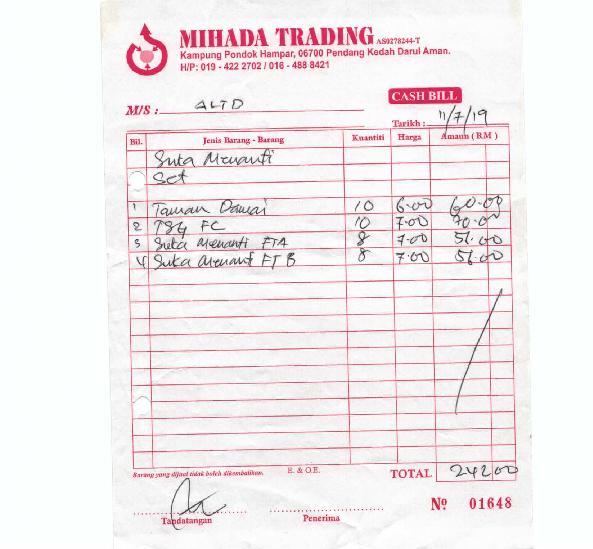 MIHADA TRADING AS0278244-T
Kampung Pondok Hampar, 06700 Pendang Kedah Darul Aman.
H/P: 019 - 422 2702 / 016 - 488 8421
CASH BILL
M/S : ALTD
Tarikh : 11/7/19
Bil. Jenis Barang - Barang Kuantiti Harga Amaun ( RM )
Suka Menanti
Set
1 Taman Damai 10 6.00 60.00
2 TSG FC 10 7.00 70.00
3 Suka Menanti FTA 8 7.00 56.00
4 Suka Menanti FTB 8 7.00 56.00
Barang yang dijual tidak boleh dikembalikan. E. & O.E. TOTAL 242 00
Tandatangan Penerima Nº 01648